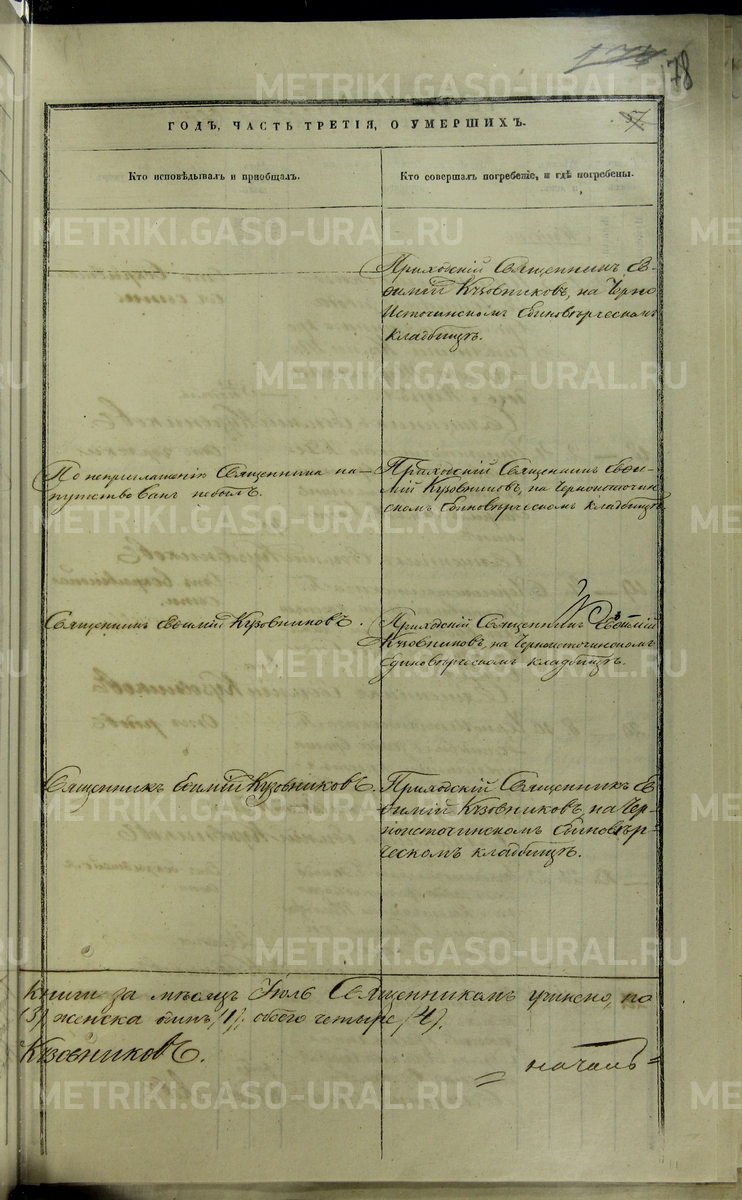 174
178
ГОДЪ, ЧАСТЬ ТРЕТІЯ, О УМЕРШИХЪ.
57
Кто исповѣдывалъ и пріобщалъ.
Кто совершалъ погребеніе, и гдѣ погребены.
Приходскій Священникъ Ев-
фимій Кузовниковъ, на Черно
Источинскомъ Единовѣрческомъ
кладбищѣ.
По неприглашенію Священника на-
путствованъ небылъ.
Приходскій Священникъ Евфи-
мій Кузовниковъ, на Черноисточин-
скомъ Единовѣрческомъ кладбищѣ.
Священникъ Евфимій Кузовниковъ.
Приходскій Священникъ Евфимій
Кузовниковъ, на Черноисточинскомъ
Единовѣрческомъ кладбищѣ.
Священникъ Евфимій Кузовниковъ.
Приходскій Священникъ Ев-
фимій Кузовниковъ, на Чер-
ноисточинскомъ Единовѣр-
ческомъ кладбищѣ.
книги за мѣсяцъ Іюль Священникомъ учинено, по
(3) женска одинъ (1), обоего четыре (4).
Кузовниковъ.
METRIKI.GASO-URAL.RU